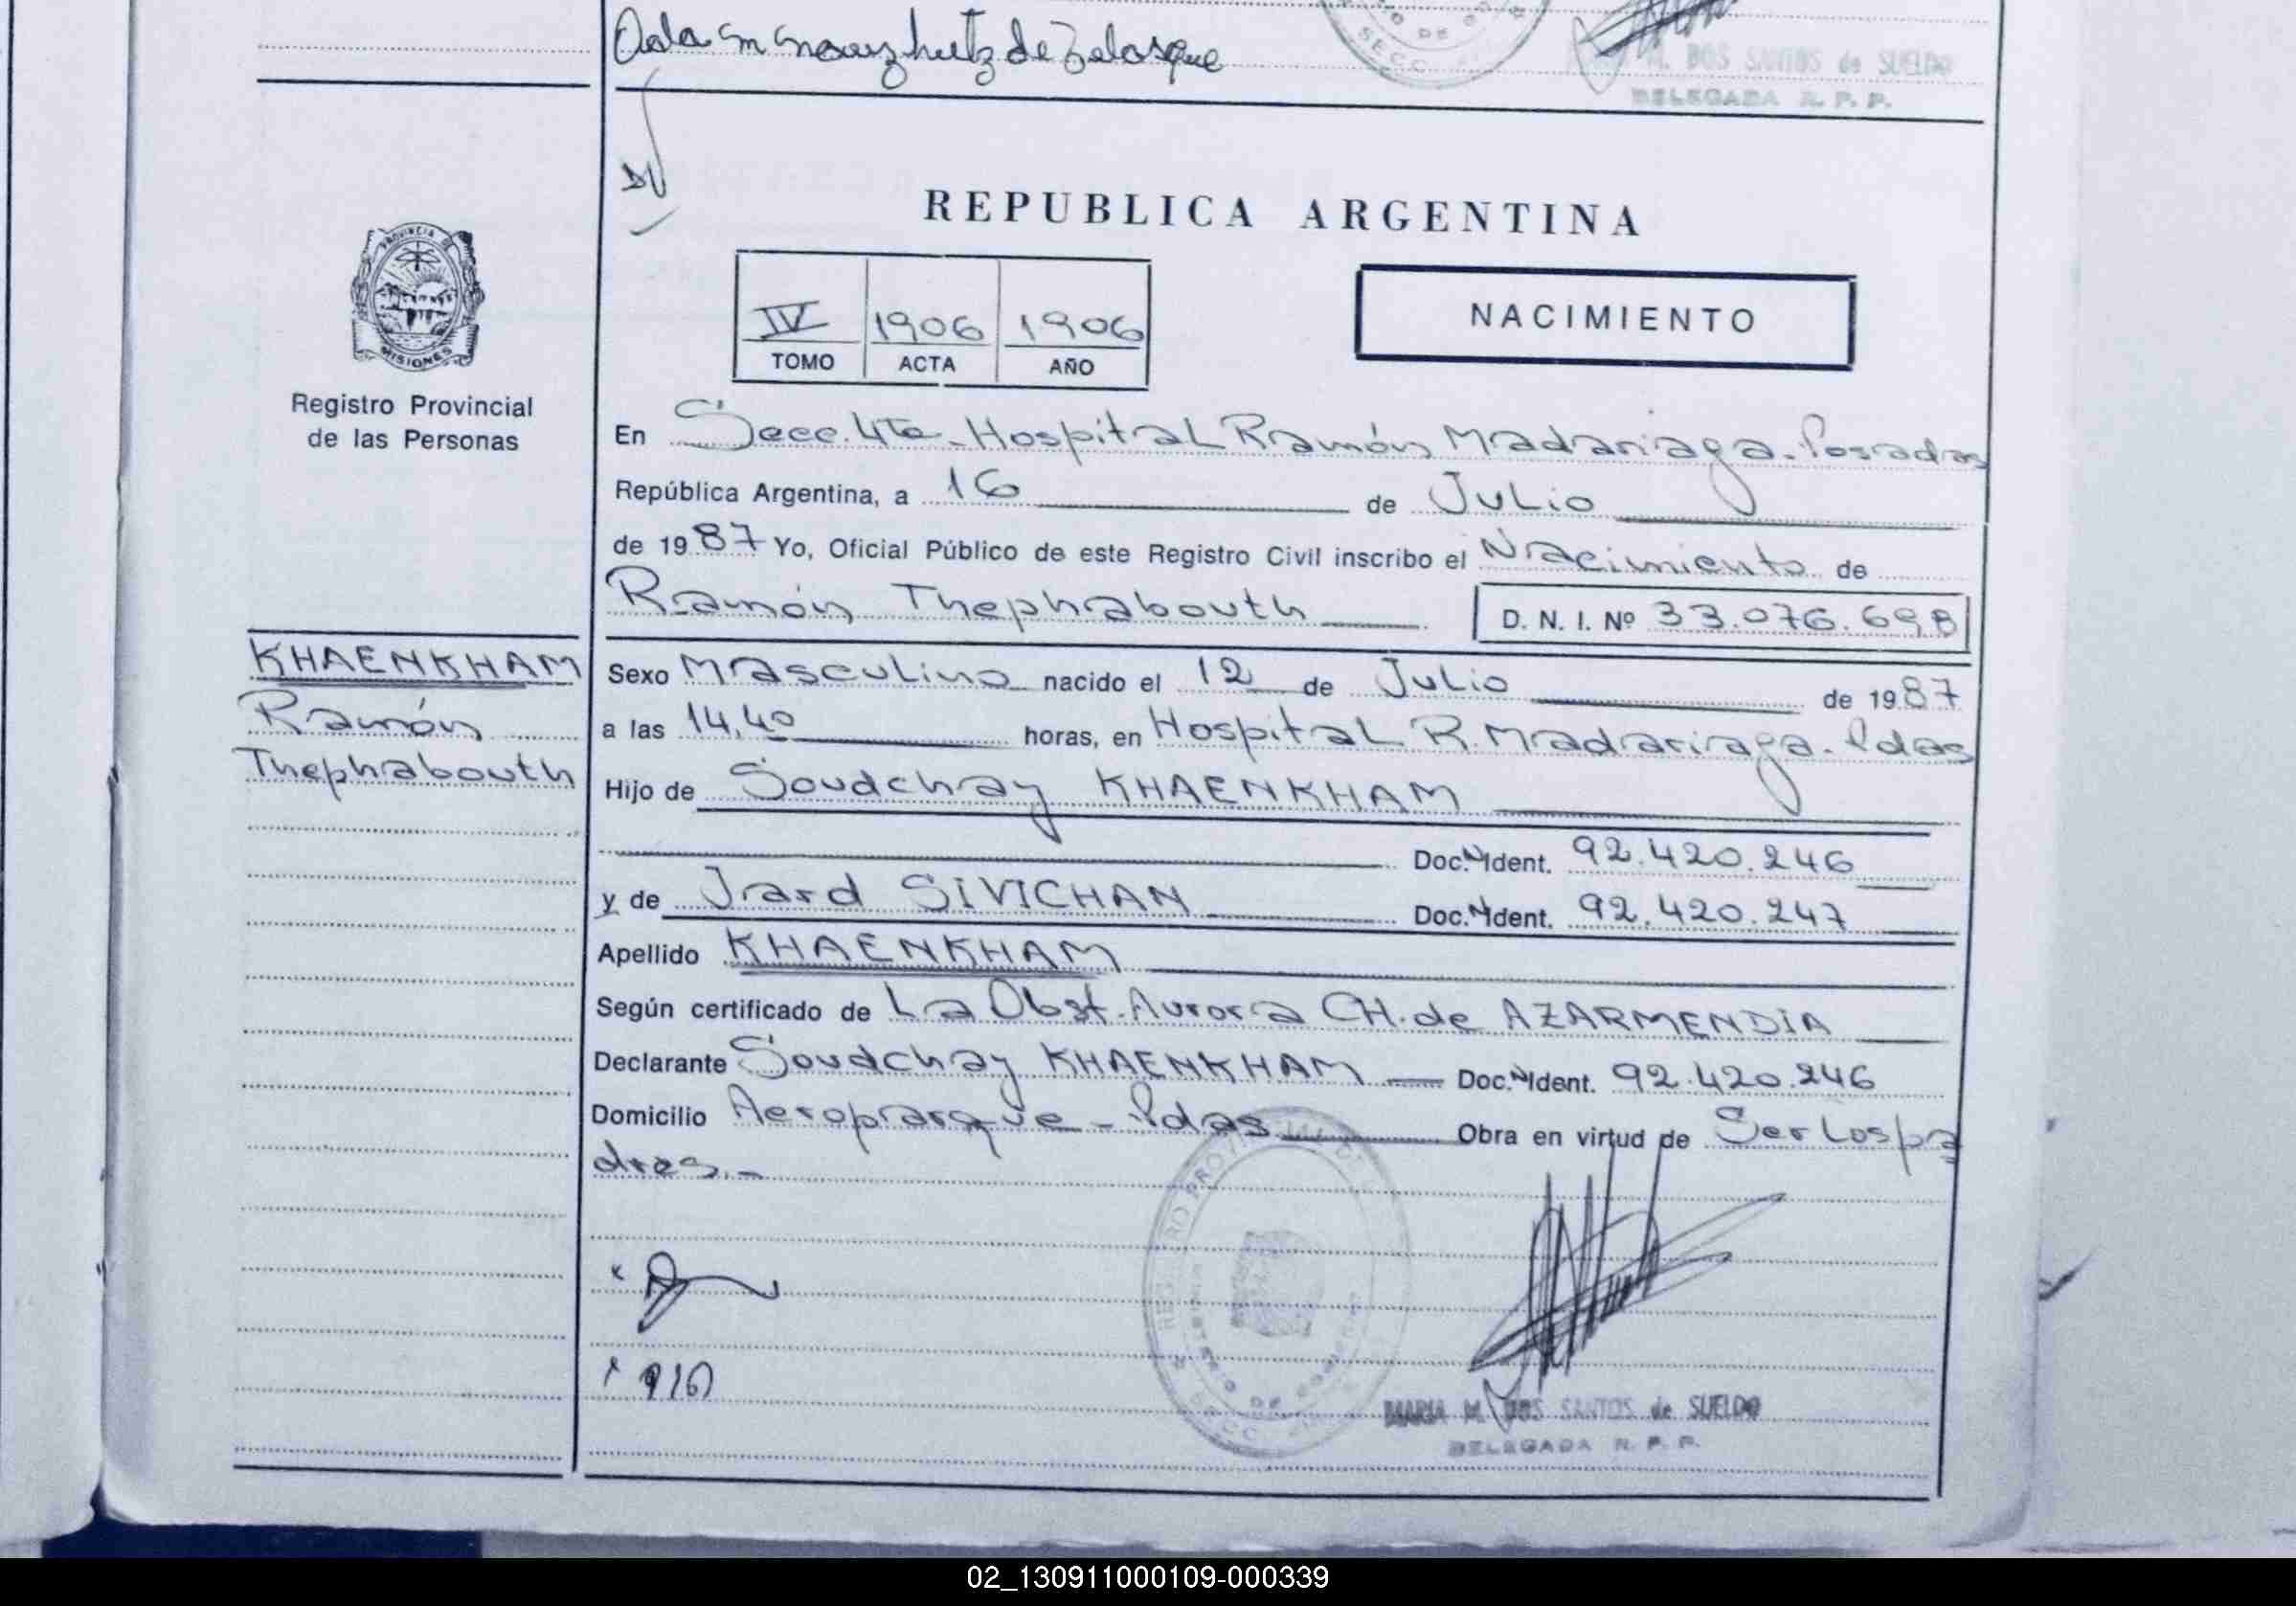 de Zelasque
SECC.
DE
M. DOS SANTOS de SUELDO
DELEGADA R. P. P.
REPUBLICA ARGENTINA
PROVINCIA DE
MISIONES
Registro Provincial
de las Personas
IV 1906 1906
TOMO ACTA AÑO
NACIMIENTO
En Secc. 4ta - Hospital Ramón Madariaga. Posadas
República Argentina, a 16 de Julio
de 1987 Yo, Oficial Público de este Registro Civil inscribo el Nacimiento de
Ramón Thephabouth D. N. I. Nº 33.076.698
KHAENKHAM
Ramón
Thephabouth
Sexo Masculino nacido el 12 de Julio de 1987
a las 14,40 horas, en Hospital R. Madariaga. Pdas
Hijo de Soudchay KHAENKHAM
Doc. Ident. 92.420.246
y de Jrard SIVICHAN Doc. Ident. 92.420.247
Apellido KHAENKHAM
Según certificado de La Obst. Aurora CH. de AZARMENDIA
Declarante Soudchay KHAENKHAM Doc. Ident. 92.420.246
Domicilio Aeroparque - Pdas Obra en virtud de Ser Los pa
dres.-
MARIA M. DOS SANTOS de SUELDO
DELEGADA R. P. P.
02_130911000109-000339